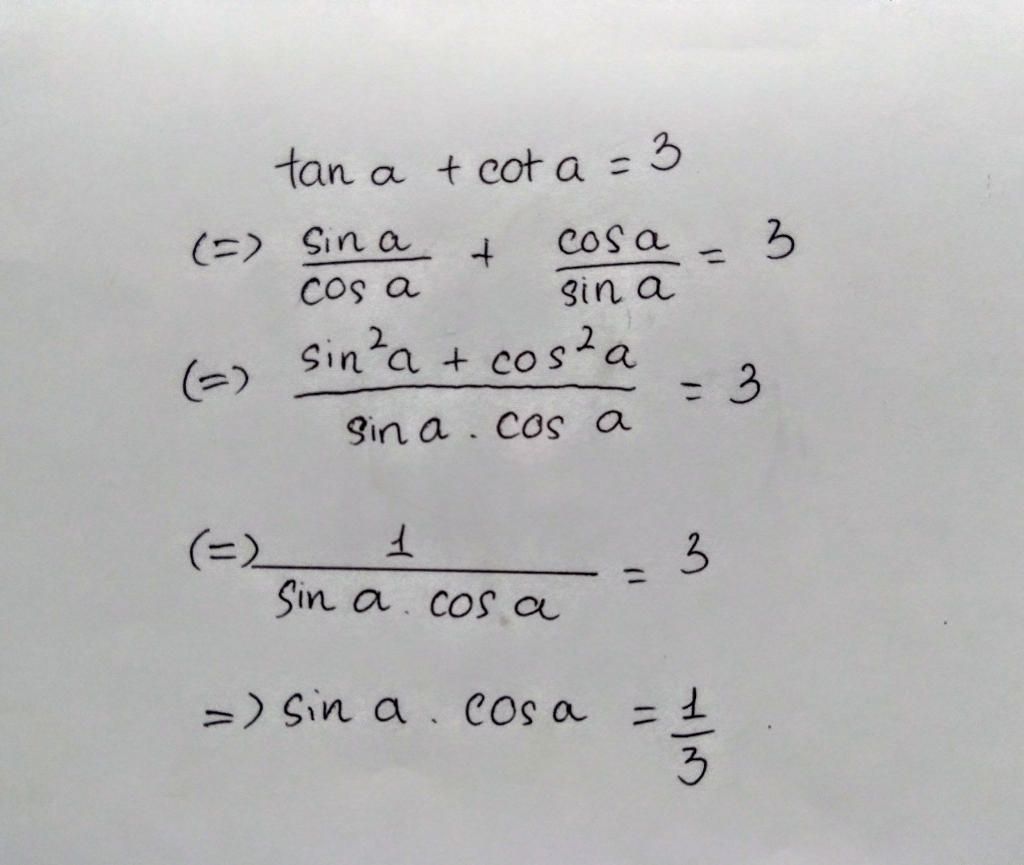 tan a + cot a = 3
(=) sin a / cos a + cos a / sin a = 3
(=) sin²a + cos²a / sin a . cos a = 3
(=) 1 / sin a . cos a = 3
=) sin a . cos a = 1/3